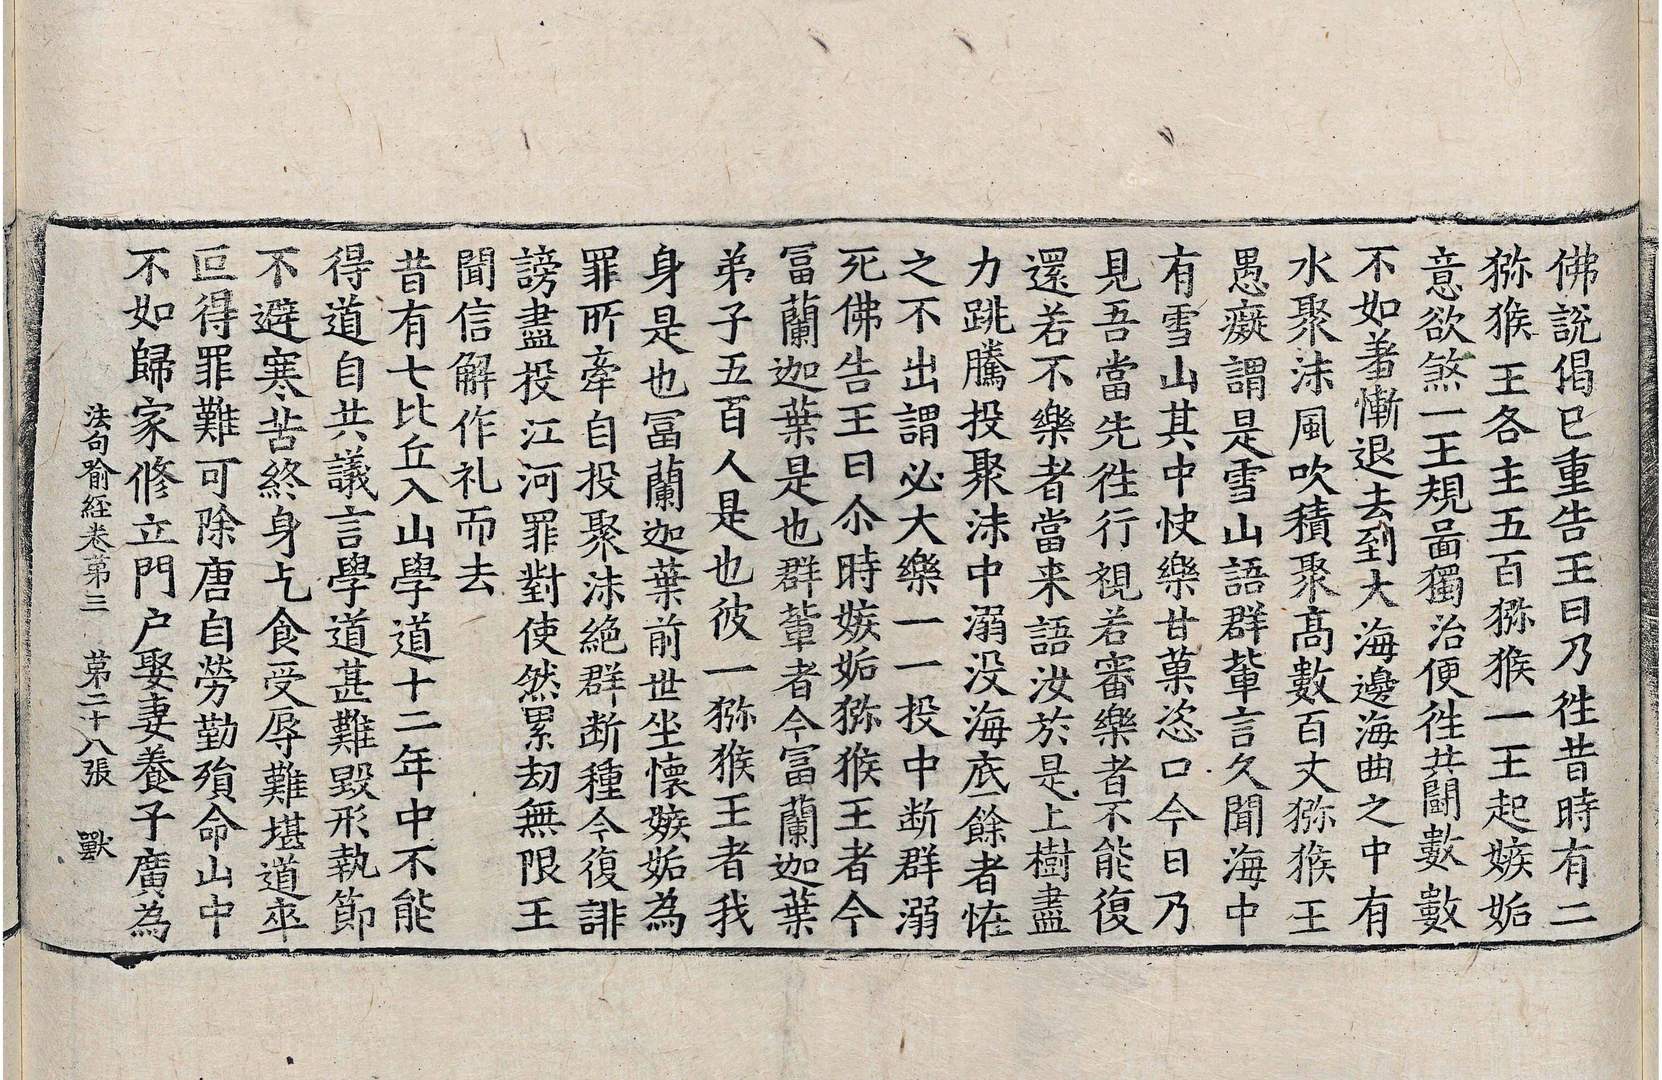 佛說偈已重告王曰乃徃昔時有二
猕猴王各主五百猕猴一王起嫉妬
意欲煞一王規啚獨治便徃共鬪數數
不如著慚退去到大海邊海曲之中有
水聚沫風吹積聚髙數百丈猕猴王
愚癡謂是雪山語群輩言久聞海中
有雪山其中快樂甘菓恣口今日乃
見吾當先徃行視若審樂者不能復
還若不樂者當来語汝於是上樹盡
力跳騰投聚沫中溺没海底餘者恠
之不出謂必大樂一一投中断群溺
死佛告王曰尒時嫉妬猕猴王者今
冨蘭迦葉是也群輩者今冨蘭迦葉
弟子五百人是也彼一猕猴王者我
身是也冨蘭迦葉前世坐懷嫉妬為
罪所牽自投聚沫絶群断種今復誹
謗盡投江河罪對使然累劫無限王
聞信解作礼而去
昔有七比丘入山學道十二年中不能
得道自共議言學道甚難毀形執節
不避寒苦終身乞食受辱難堪道卒
叵得罪難可除唐自勞勤殞命山中
不如歸家修立門户娶妻養子廣為
法句喻経卷第三　第二十八張　獸